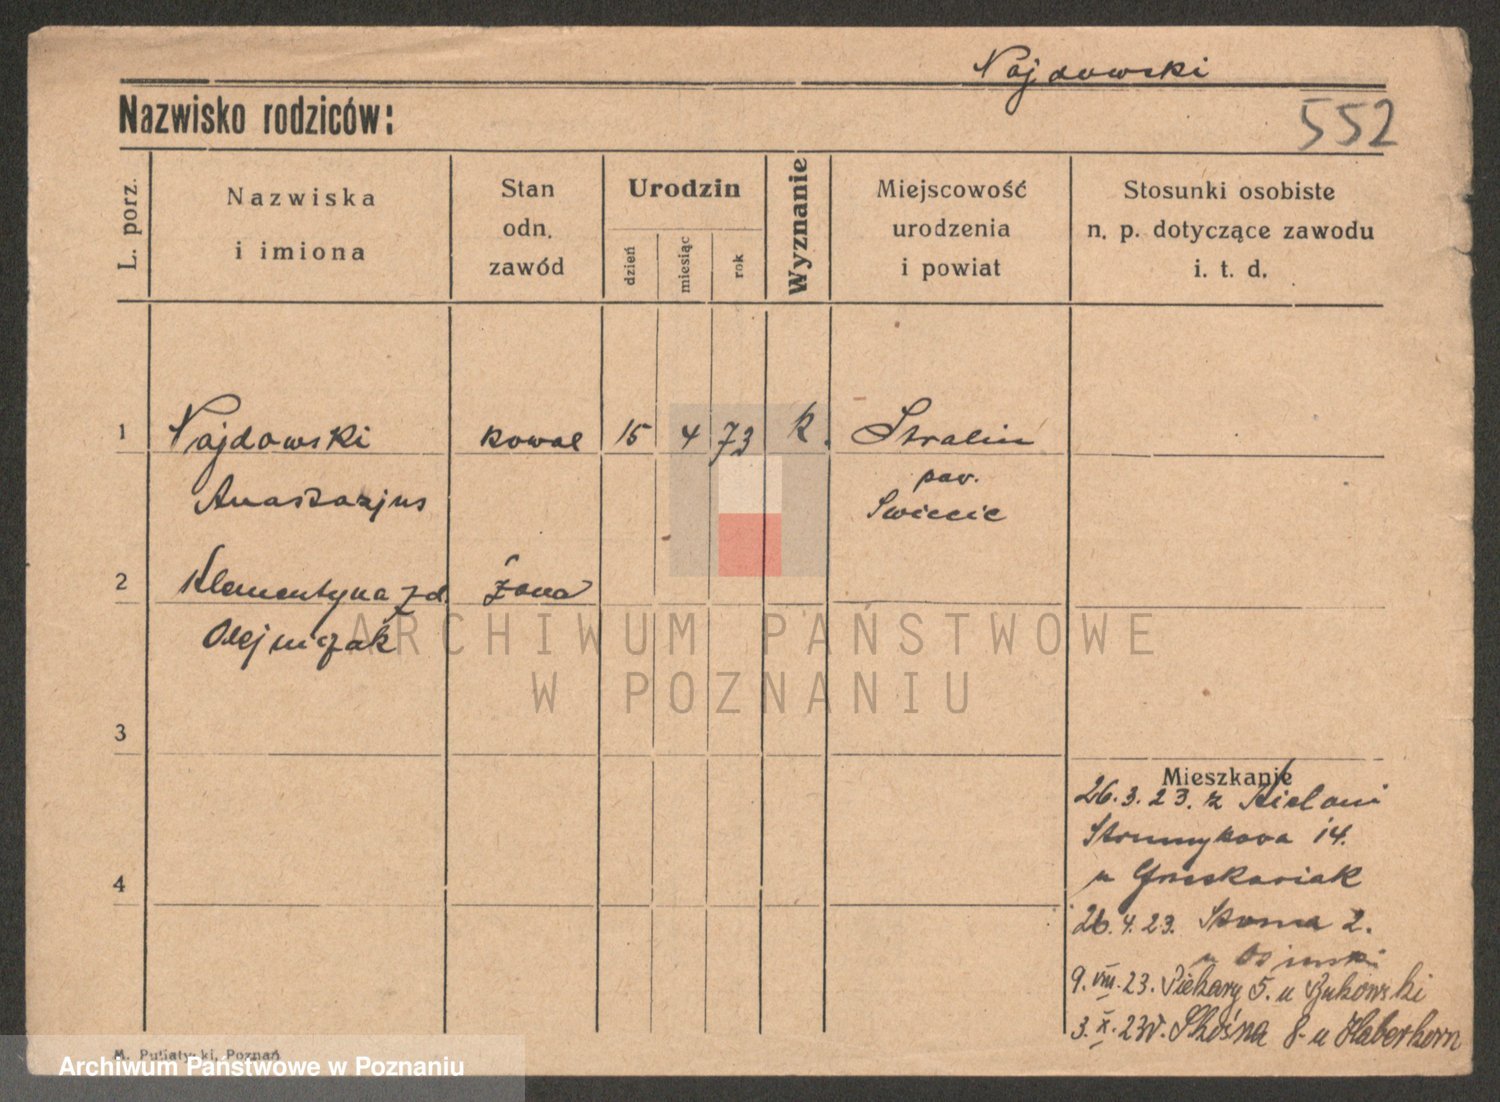 Najdowski
552
Nazwisko rodziców:
L. porz.
Nazwiska
i imiona
Stan
odn.
zawód
Urodzin
dzień
miesiąc
rok
Wyznanie
Miejscowość
urodzenia
i powiat
Stosunki osobiste
n. p. dotyczące zawodu
i. t. d.
1 Najdowski kowal 15 4 73 k.
Anastazjus pow.
2 Klementyna zd. żona
Olejniczak
ARCHIWUM PAŃSTWOWE
W POZNANIU
3
Mieszkanie
26.3.23. z
Strumykowa 14.
4
26.4.23. 2.
u Osinski
9.VIII.23. Piekary 5. u Bukowski
3.X.23 8 u Haberkorn
M. Putiatycki, Poznań
Archiwum Państwowe w Poznaniu